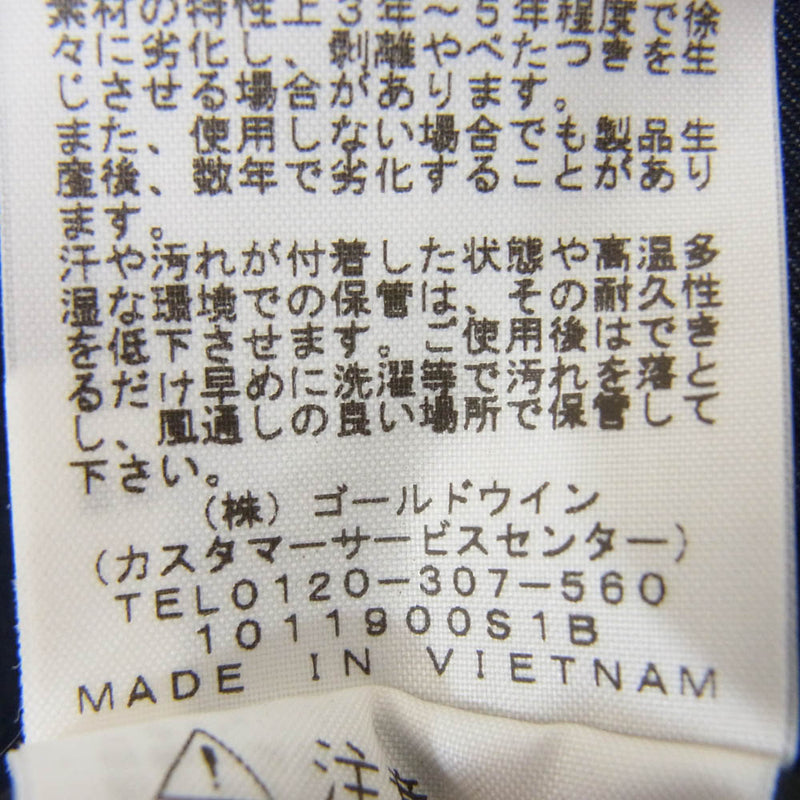 素材の特性上、3年～5年程度で徐
々に劣化し、剥離やべたつきを生
じさせる場合があります。
また、使用しない場合でも製品生
産後、数年で劣化することがあり
ます。
汗や汚れが付着した状態や高温多
湿な環境での保管は、その耐久性
を低下させます。ご使用後はでき
るだけ早めに洗濯等で汚れを落と
し、風通しの良い場所で保管して
下さい。
(株) ゴールドウイン
(カスタマーサービスセンター)
TEL0120-307-560
1011900S1B
MADE IN VIETNAM
注